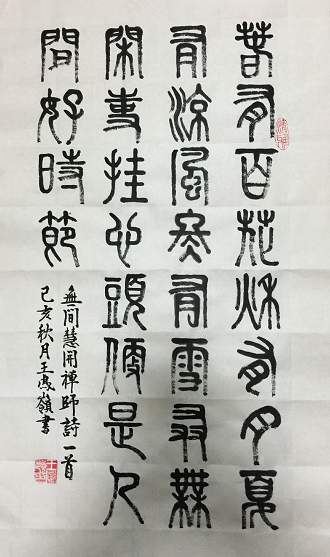 春有百花秋有月夏
有涼風冬有雪若無
閑事挂心頭便是人
間好時節
無間慧開禪師詩一首
己亥秋月王嶺書